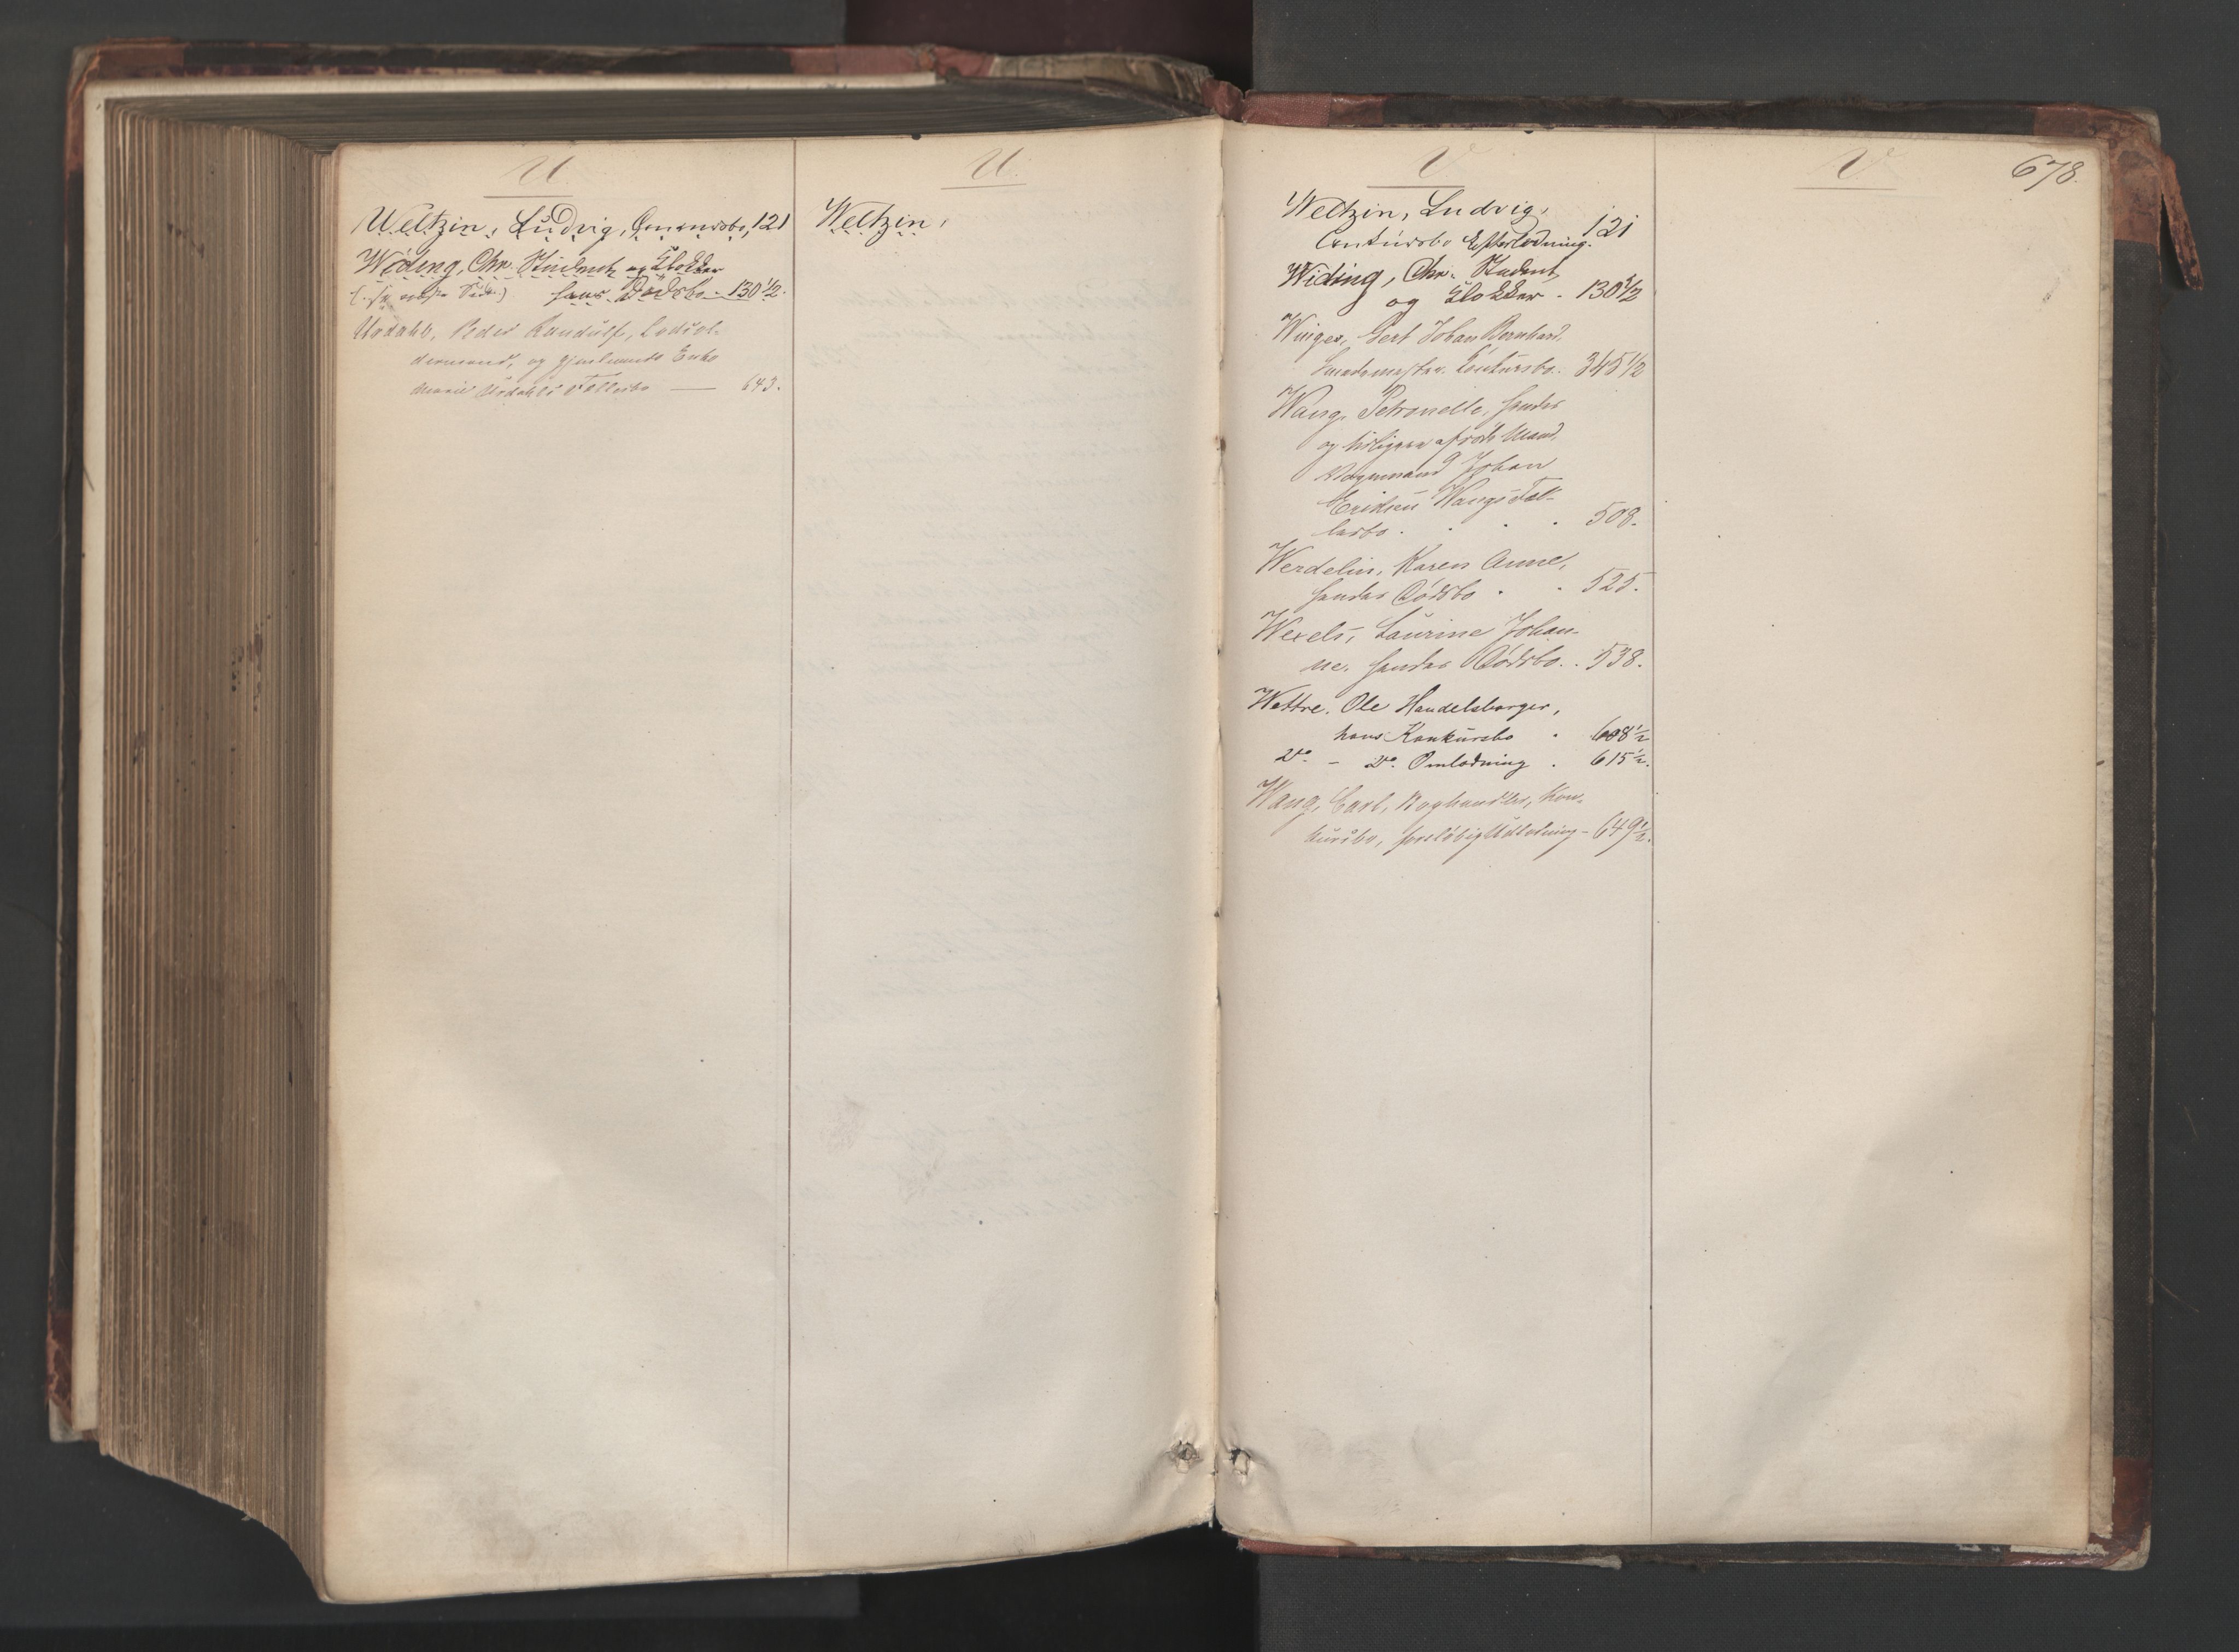 U.
Weltzin, Ludvig, 121
Widing, Chr. Student og Klokker
(: se næste Side :) hans Dødsbo. 130 1/2.
Urdahl, Peder Randulf, Lodsol-
dermand, og gjenlevende Enke
Marie Urdahls Fællesbo — 643.
U.
Weltzin,
V.
V.
678.
Weltzin, Ludvig,
Contursbo Efterlodning. 121
Widing, Chr. Student
og Klokker . 130 1/2
Winges, Gert Johan Bernhard,
Contursbo. 345 1/2
Wang, Petronelle, hendes
og tidligere afdøde Mand,
Vognmand Johan
Eriksen Wangs Fæl-
lesbo . . . . 508.
Werdelin, Karen Anne,
hendes Dødsbo . . 525.
Wexels, Laurine Johan-
ne, hendes Dødsbo . . 538.
Wettre. Ole Handelsborger,
hans Konkursbo . 608 1/2
Do. – Do. Omlodning . 615 1/2.
Wang, Carl, Boghandler, Kon-
kursbo, foreløbig Udlodning – 649 1/2.